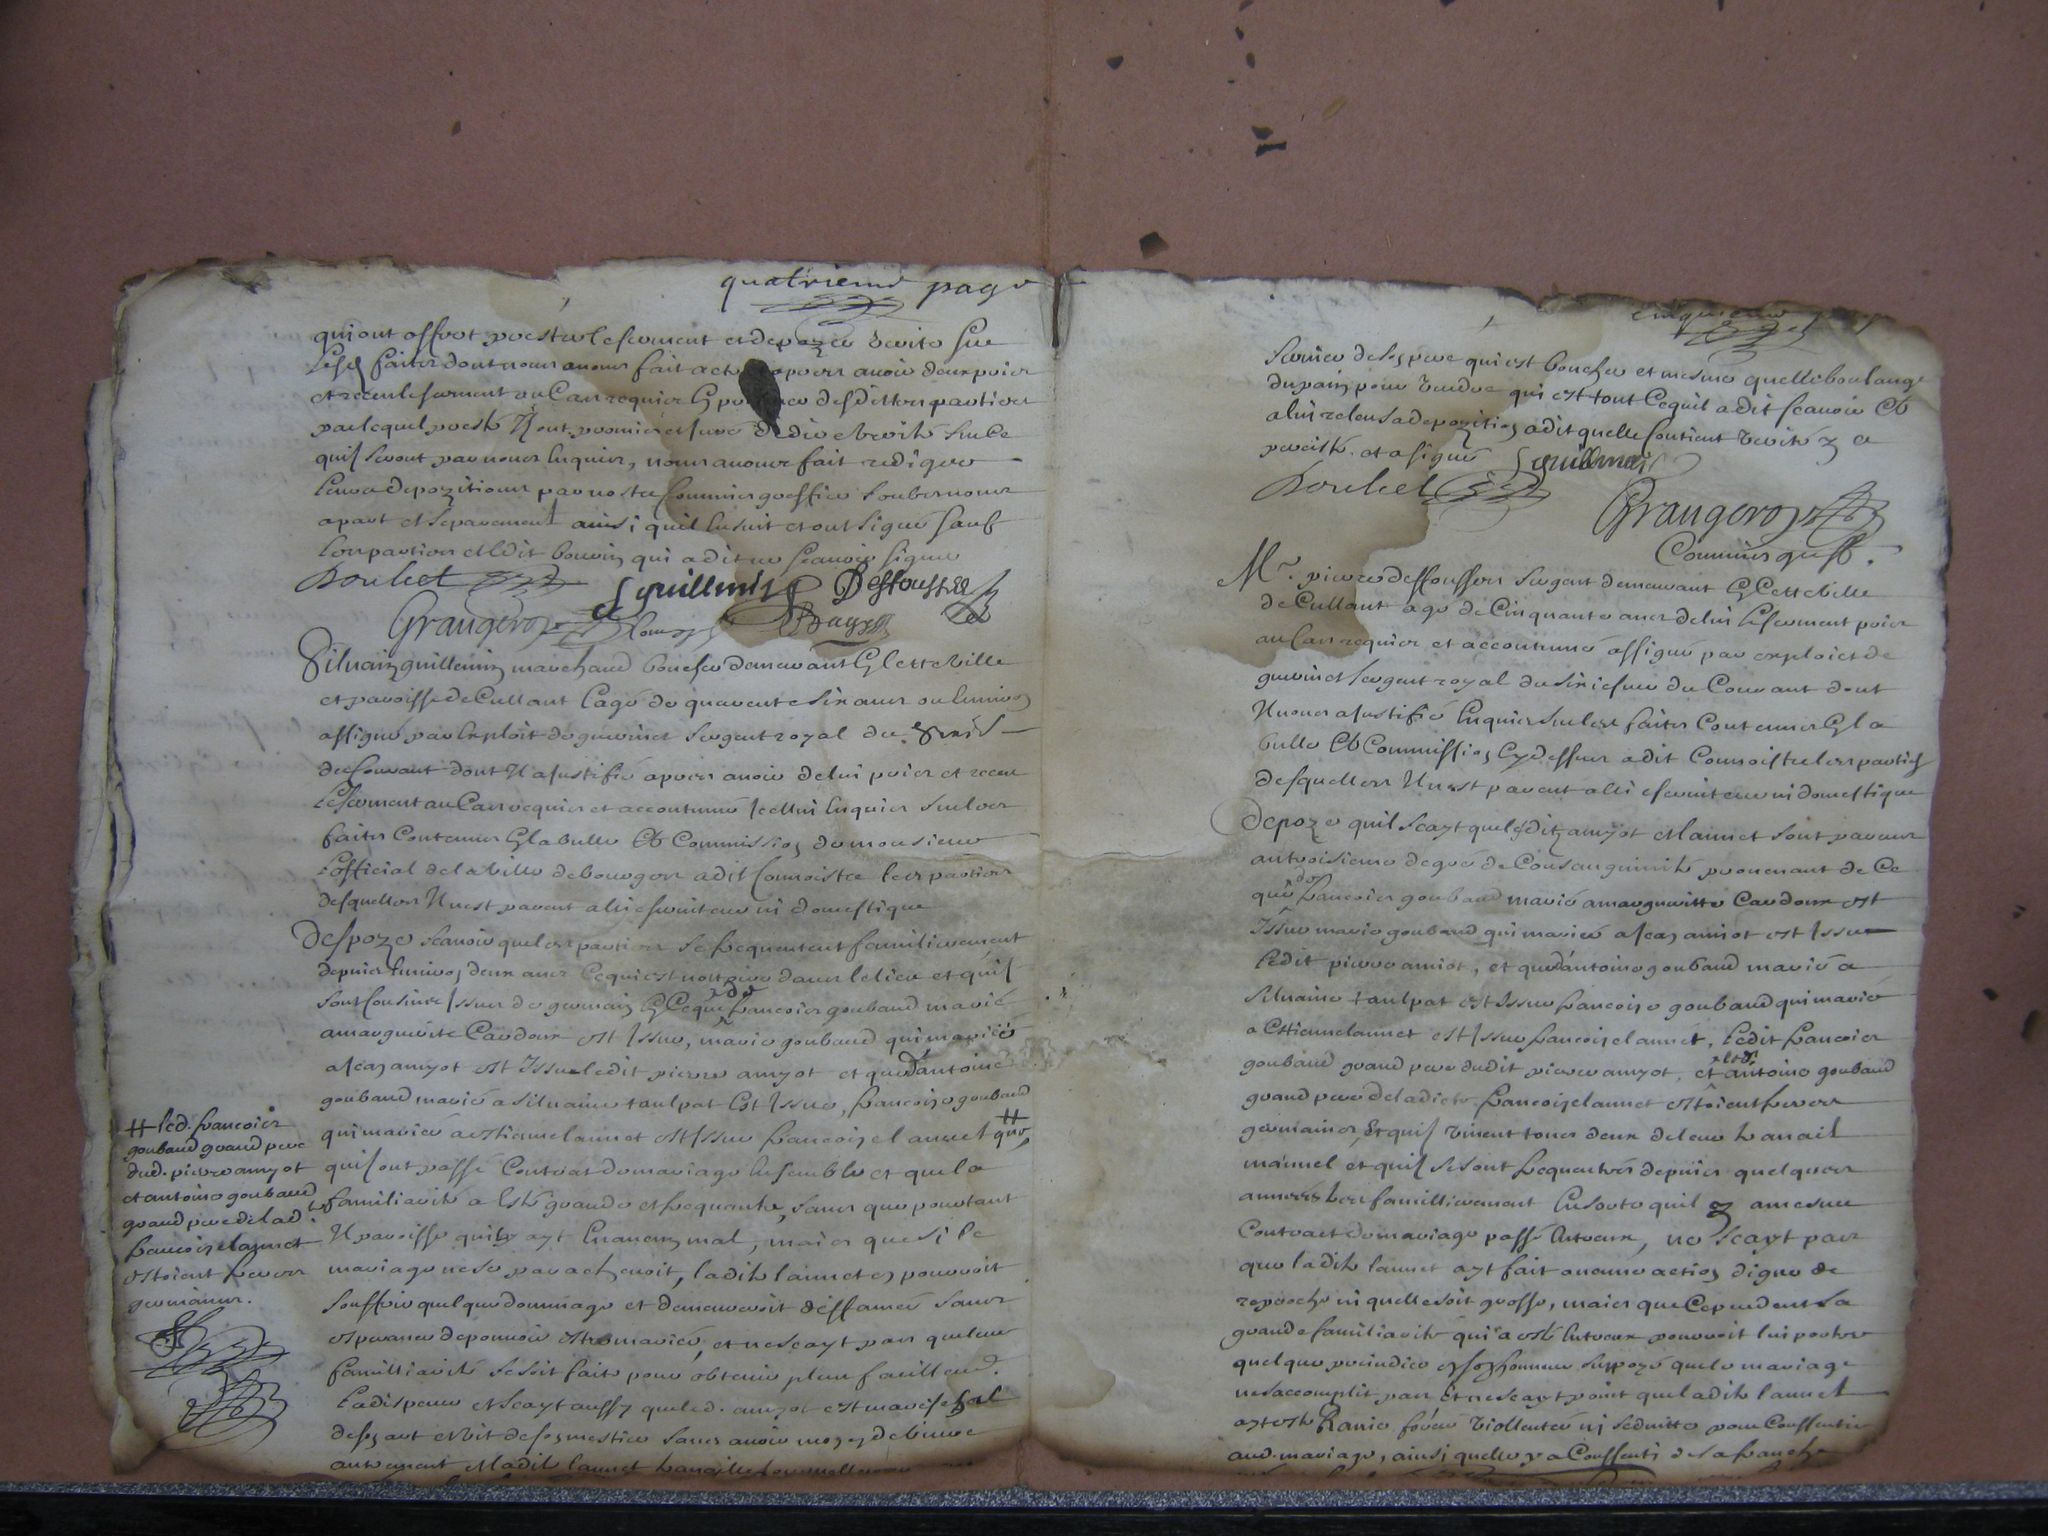 quatrieme page
qui ont offert prester le serment et depozer verité sur
lesd faits dont nous avons fait acte apres avoir deux pris
et receu le serment au Cas requis En presence desdittes parties
par lequel presté Il ont promis et juré de dire verité sur Ce
quils seront par nous Enquis, nous avons fait rediger
Leurs depozitions par nostre Commis greffier soubs nous
apart et separement ainsi quil Ensuit et ont signé sauf
les parties et ledit qui a dit ne scavoir signer
Doulcet Guillemin Dessousses
Grangeron
Silvain guillemin marchand boucher demeurant En cette ville
et paroisse de Cullant Eagé de quarente six ans ou Environ
assigné par Exploit de sergent royal du Seize
du Courant dont Il a justifié apres avoir de lui pris et receu
Le serment au Cas requis et accoutumé Icellui Enquis sur les
faits Contenus En la bulle Et Commission de monsieur
Lofficial de la ville de bourges a dit Connoistre les parties
desquelles Il nest parent allié serviteur ni domestique
Despoze scavoir que les parties se frequentent familierement
depuis Environ deux ans Ce qui est nottoire dans le lieu et quils
sont Cousins Issus de germain En Ce que de francois goubaud marié
a marguerite Cardoux est Issue, marie goubaud qui, mariée
a Jean amyot est Issu ledit pierre amyot et que dantoine
goubaud marié a silvaine taulpat Est Issue, francoise goubaud
qui mariée a estienne lannet est Issue francoise lannet # que,
quils ont passé Contrat de mariage Ensemble et que la
familiarité a Esté grande et frequente, sans que pourtant
Il paroisse quil y ayt En aucun mal, mais que si le
mariage ne se parachevoit, ladite lannet en pourroit
souffrir quelque dommage et demeureroit diffamée sans
esperance de pouvoir estre mariée, et ne scayt pas que leur
familliarité se soit faite pour obtenir plus facillemt
La dispence et scayt aussy que led. amyot est mareschal
de son art et vit de son mestier sans avoir moyen de vivre
autrement et ladite lannet
# led. francois
goubaud grand pere
dud. pierre amyot
et antoine goubaud
grand pere de lad
francoise lannet
estoient freres
germains.
cinquieme page
service de son pere qui est boucher et mesme quelle boulange
du pain pour vendre qui est tout Ce quil a dit scavoir Et
a lui releu sa depozition a dit quelle Contient verité y a
persisté et a signé Guillemin
Doulcet
Grangeron
Commis greff.
Mr. pierre dessousses sergent demeurant En Cette ville
de Cullant agé de Cinquante ans de lui le serment pris
au Cas requis et accoutumé assigné par exploict de
sergent royal du sixiesme du Courant dont
Il nous a justifié Enquis sur les faits Contenus En la
bulle Et Commission Cy dessus a dit Connoistre les parties
desquelles Il nest parent allié serviteur ni domestique
Depoze quil scayt que lesdits amyot et lannet sont parens
au troisieme degré de Consanguinité provenant de Ce
que de francois goubaud marié a margueritte Cardoux est
Issue marie goubaud qui mariée a Jean amiot est Issu
ledit pierre amiot, et que dantoine goubaud marié a
silvaine taulpat est Issue francoise goubaud qui mariée
a Estienne lannet est Issue francoise lannet, ledit francois
goubaud grand pere dudit pierre amyot, et ledt antoine goubaud
grand pere de ladicte francoise lannet estoient freres
germains, Et quils vivent tous deux de leur travail
manuel et quils se sont frequentés depuis quelques
années tres famillierement En sorte quil y a mesme
Contract de mariage passé Entreux, ne scayt pas
que ladite lannet ayt fait aucune action digne de
reproche ni quelle soit grosse, mais que Cependent la
grande familiarité qui a esté Entreux pourroit lui porter
quelque prejudice en son honneur supozé que le mariage
ne saccomplit pas Et ne scayt point que ladite lannet
ayt esté Ravie forcée viollentée ni seduitte pour Conssentir
aud. mariage, ainsi quelle y a Conssenti de sa franche